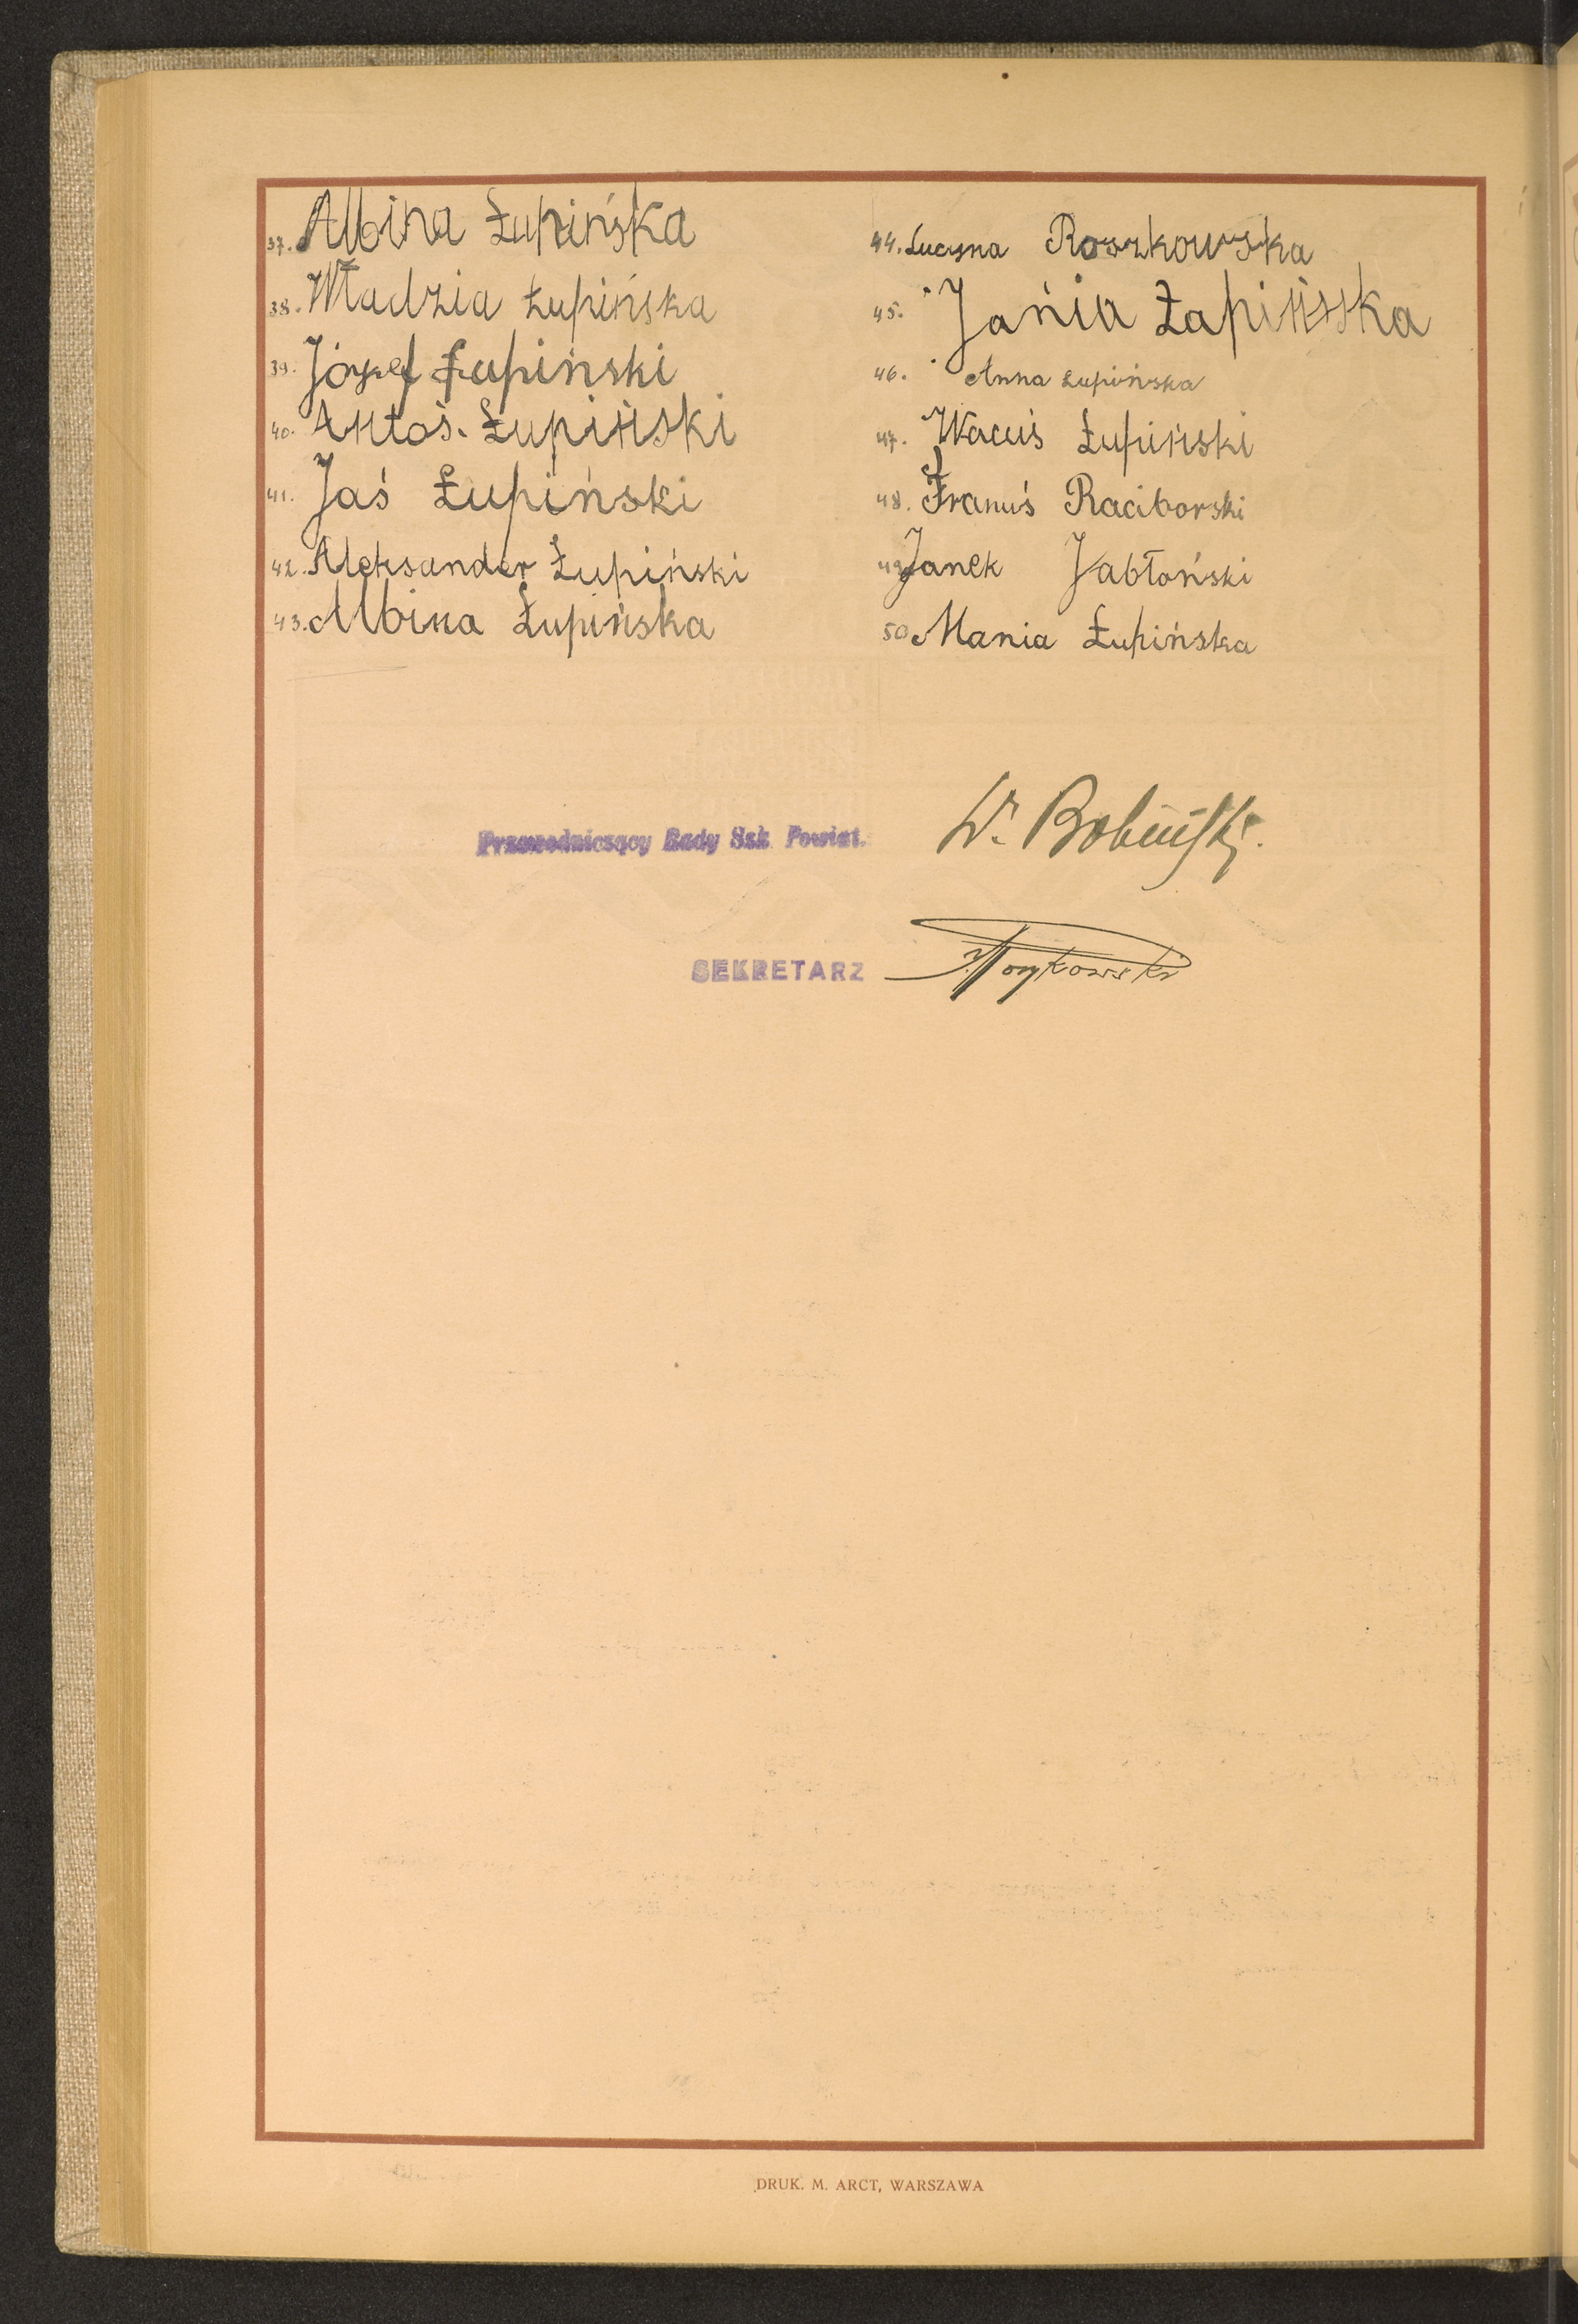 37. Albina Łupińska
38. Władzia Łupińska
39. Józef Łupiński
40. Antoś. Łupiński
41. Jaś Łupiński
42. Aleksander Łupiński
43. Albina Łupińska
44. Lucyna Roszkowska
45. Jańia Łapińsska
46. Anna Łupińska
47. Wacuś Łupiński
48. Franuś Raciborski
49. Janek Jabłoński
50. Mania Łupińska
Przewodniczący Rady Szk. Powiat. W. Bobiński.
SEKRETARZ
DRUK. M. ARCT, WARSZAWA